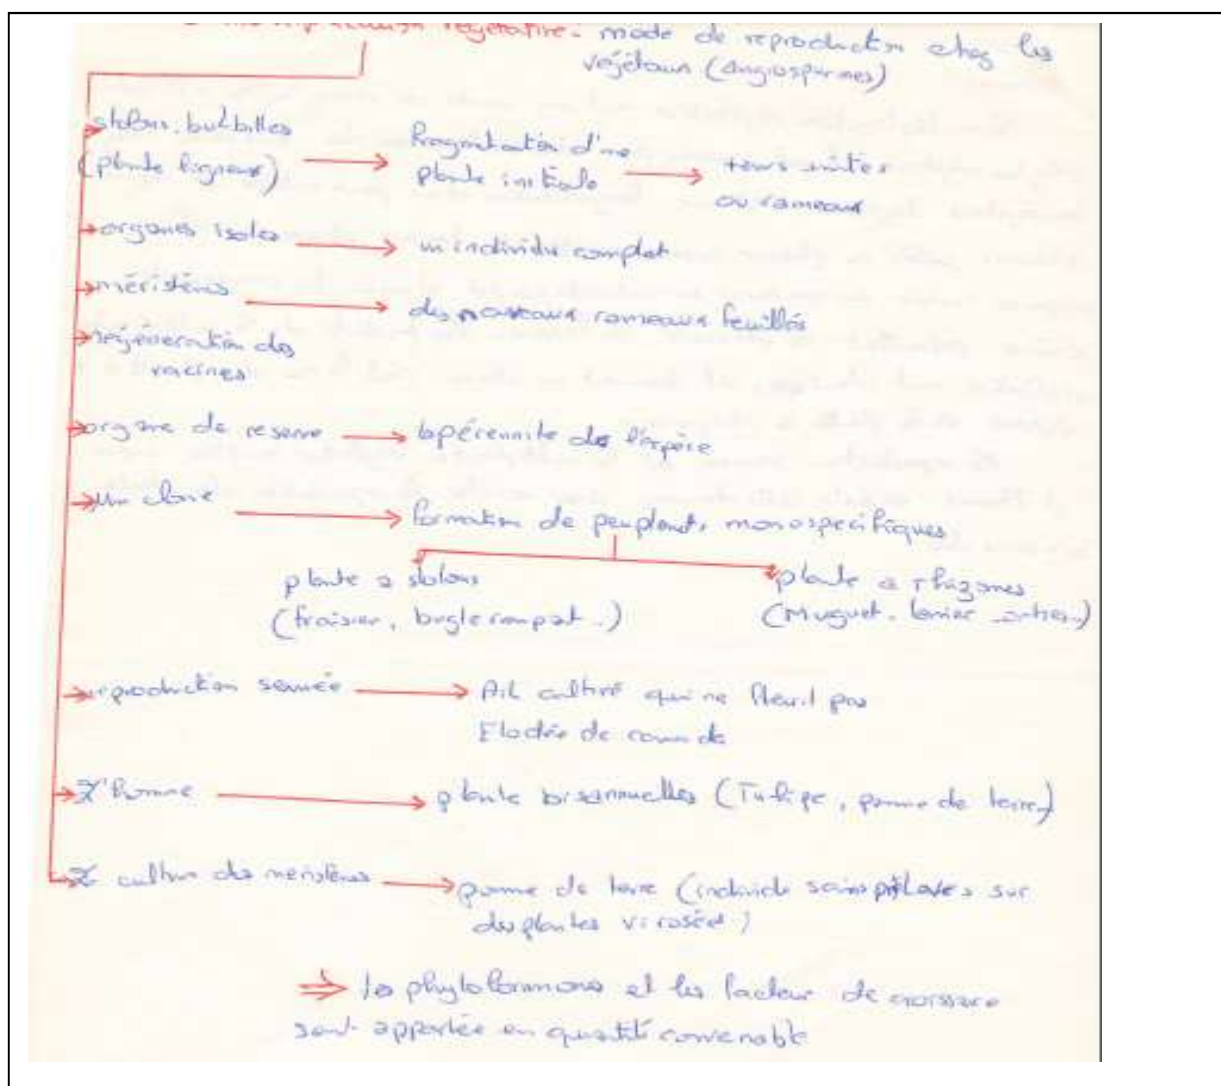 végétative: mode de reproduction chez les
végétaux (Angiospermes)
stolons, bulbilles
(plante ligneux)
Fragmentation d'une
plante initiale
ou rameaux
organes isolés
un individu complet
méristèms
des nouveaux rameaux feuillés
régéneration des
racines
organe de reserve
la pérennite de l'espèce
Un clone
formation de monospecifiques
plante a stolons
(fraisier, bugle rampat..)
plante a rhizomes
(Muguet.
reproduction sexuée
Ail cultivé qui ne fleurit pas
Elodée de
L'homme
plante bisannuelles (Tulipe, pomme de terre)
culture des meristèms
pomme de terre (individu sains sur
des plantes virosées)
⇒ les phytohormons et les facteur de croissance
sont apportée en quantité convenable